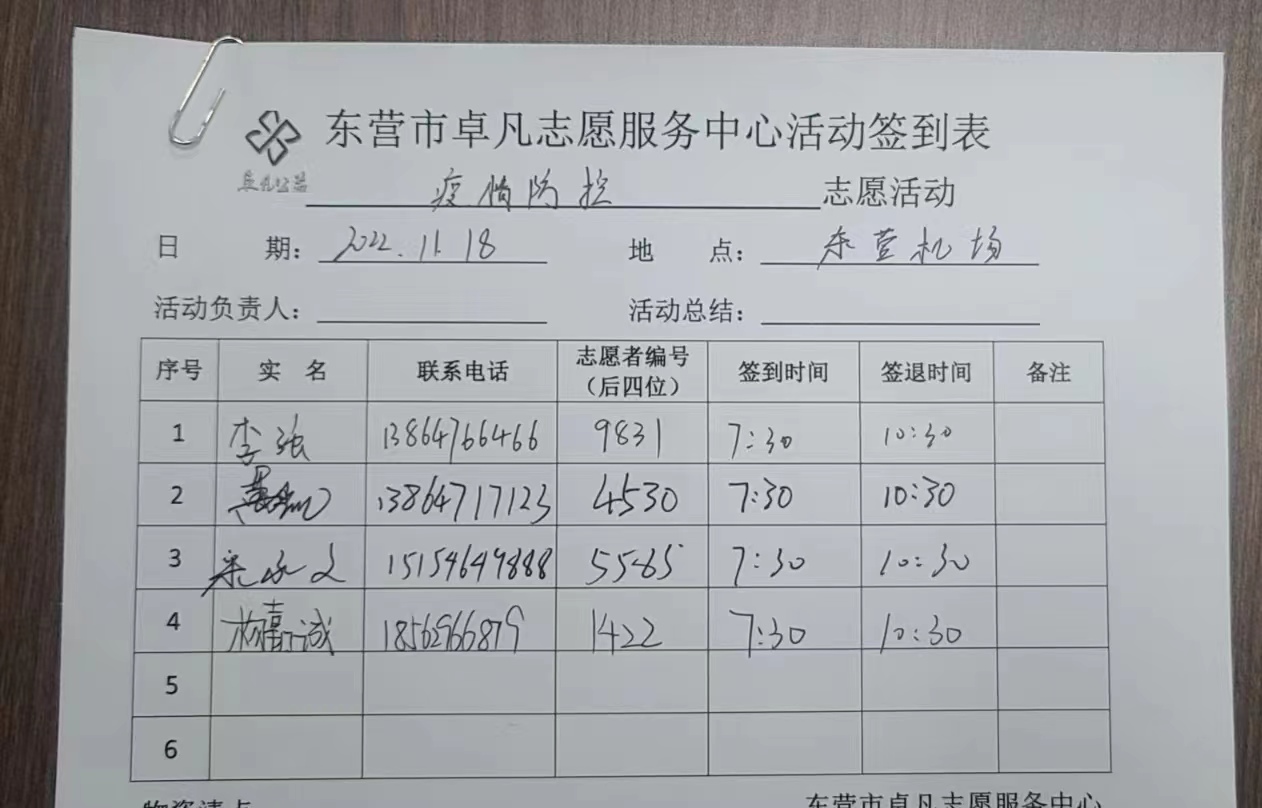 东营市卓凡志愿服务中心活动签到表
卓凡公益
疫情防控 志愿活动
日 期: 2022.11.18 地 点: 东营机场
活动负责人: 活动总结:
序号 实 名 联系电话 志愿者编号(后四位) 签到时间 签退时间 备注
1 李强 13864766466 9831 7:30 10:30
2 13864717123 4530 7:30 10:30
3 15154649888 5565 7:30 10:30
4 杨嘉诚 18562966879 1422 7:30 10:30
5
6
物资清点 东营市卓凡志愿服务中心